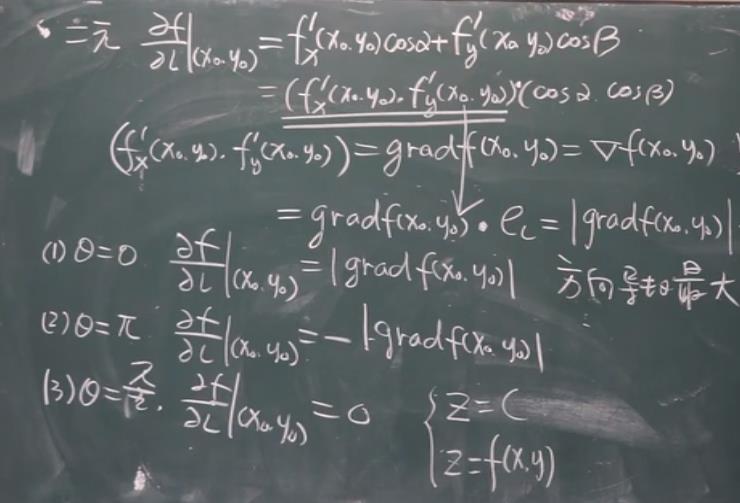 二元 ∂f/∂l|(x₀,y₀) = f'x(x₀,y₀)cosα + f'y(x₀,y₀)cosβ
= (f'x(x₀,y₀), f'y(x₀,y₀))·(cosα, cosβ)
(f'x(x₀,y₀), f'y(x₀,y₀)) = gradf(x₀,y₀) = ∇f(x₀,y₀)
= gradf(x₀,y₀)·e_l = |gradf(x₀,y₀)|
(1) θ=0 ∂f/∂l|(x₀,y₀) = |gradf(x₀,y₀)| 方向导数最大
(2) θ=π ∂f/∂l|(x₀,y₀) = -|gradf(x₀,y₀)|
(3) θ=π/2, ∂f/∂l|(x₀,y₀) = 0 { z=C
z=f(x,y)